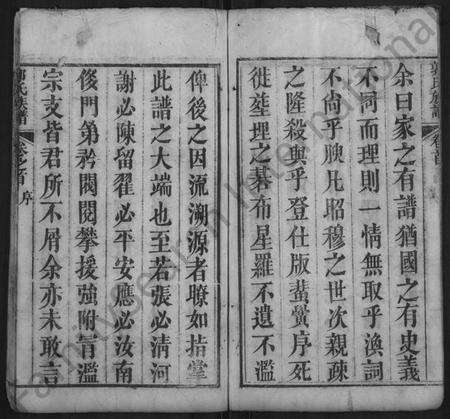 郭氏族譜 卷之首
余曰家之有譜猶國之有史義
不同而理則一情無取乎渙詞
不尚乎腴凡昭穆之世次親疎
之隆殺與乎登仕版蜚黌序死
徙塟埋之碁布星羅不遺不濫
俾後之因流溯源者瞭如指掌
此譜之大端也至若張必清河
謝必陳留翟必平安應必汝南
倐門第矜閥閱攀援強附言濫
宗支皆君所不屑余亦未敢言
郭氏族譜 卷之首 序
FamilySearch International